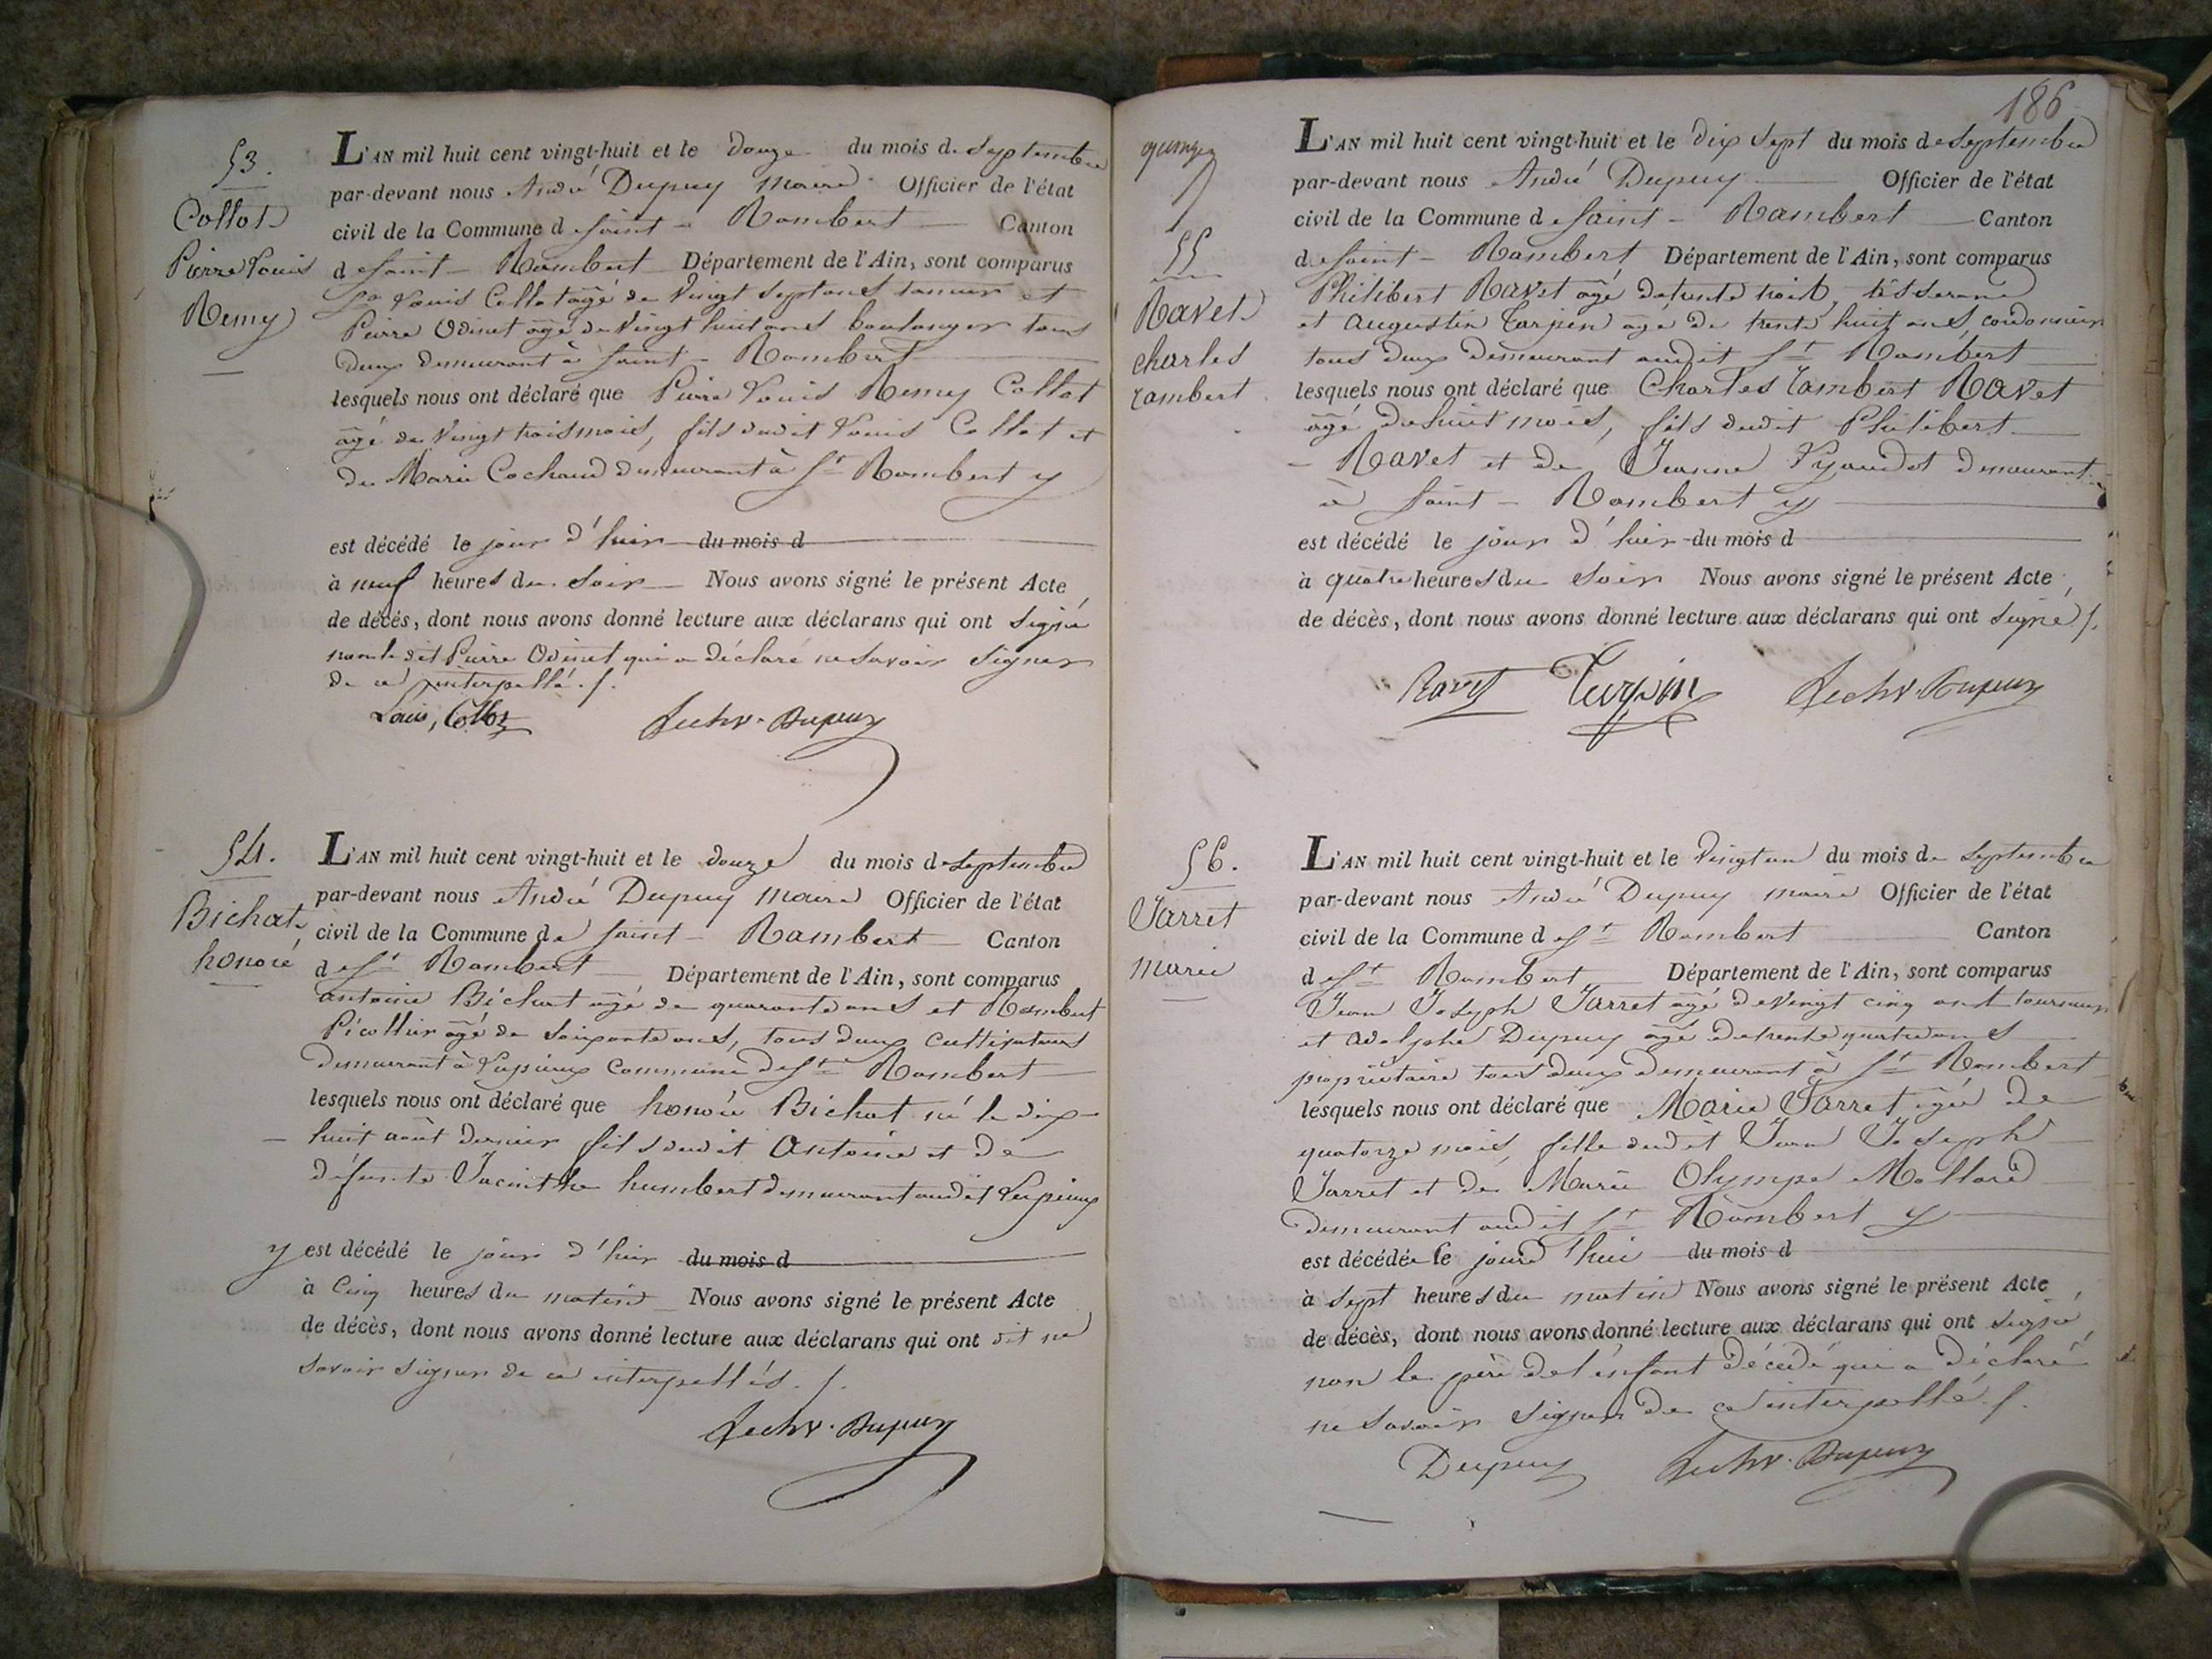 53.
Collot
Pierre Louis
Remy
L'AN mil huit cent vingt-huit et le douze du mois de Septembre
par-devant nous André Dupuy maire Officier de l'état
civil de la Commune de Saint-Rambert Canton
de Saint-Rambert Département de l'Ain, sont comparus
Louis Collot âgé de vingt sept ans tanneur et
Pierre Odinet âgé de vingt huit ans boulanger tous
deux demeurant à Saint-Rambert
lesquels nous ont déclaré que Pierre Louis Remy Collot
âgé de vingt trois mois, fils dudit Louis Collot et
de Marie Cochaud demeurant à St Rambert y
est décédé le jour d'hier du mois d
à neuf heures du soir Nous avons signé le présent Acte
de décès, dont nous avons donné lecture aux déclarans qui ont signé
non ledit Pierre Odinet qui a déclaré ne savoir signer
de ce interpellé ./.
Louis, Collot Dupuy
54.
Bichat
honoré
L'AN mil huit cent vingt-huit et le douze du mois de Septembre
par-devant nous André Dupuy maire Officier de l'état
civil de la Commune de Saint-Rambert Canton
de St Rambert Département de l'Ain, sont comparus
antoine Bichat âgé de quarante ans et Rambert
Picollier âgé de soixante ans, tous deux cultivateurs
demeurant à Lupieux Commune de St Rambert
lesquels nous ont déclaré que honoré Bichat né le dix
huit août dernier fils dudit Antoine et de
défunte Jacinthe humbert demeurant audit Lupieux
y est décédé le jour d'hier du mois d
à Cinq heures du matin Nous avons signé le présent Acte
de décès, dont nous avons donné lecture aux déclarans qui ont dit ne
savoir signer de ce interpellés ./.
Dupuy
186
55
Ravet
charles
rambert
L'AN mil huit cent vingt-huit et le dix sept du mois de Septembre
par-devant nous André Dupuy Officier de l'état
civil de la Commune de Saint-Rambert Canton
de Saint-Rambert Département de l'Ain, sont comparus
Philibert Ravet âgé de trente trois, tisserand
et Augustin Turpin âgé de trente huit ans, cordonnier
tous deux demeurant audit St Rambert
lesquels nous ont déclaré que Charles rambert Ravet
âgé de huit mois, fils dudit Philibert
Ravet et de Jeanne Vyaudot demeurant
à Saint-Rambert y
est décédé le jour d'hier du mois d
à quatre heures du soir Nous avons signé le présent Acte
de décès, dont nous avons donné lecture aux déclarans qui ont signé ./.
Ravet Turpin Dupuy
56.
Jarret
marie
L'AN mil huit cent vingt-huit et le vingt un du mois de Septembre
par-devant nous André Dupuy maire Officier de l'état
civil de la Commune de St Rambert Canton
de St Rambert Département de l'Ain, sont comparus
Jean Joseph Jarret âgé de vingt cinq ans tourneur
et adolphe Dupuy âgé de trente quatre ans
propriétaire tous deux demeurant à St Rambert
lesquels nous ont déclaré que Marie Jarret âgée de
quatorze mois, fille dudit Jean Joseph
Jarret et de Marie Olympe Mollard
demeurant audit St Rambert y
est décédée le jourd'hui du mois d
à sept heures du matin Nous avons signé le présent Acte
de décès, dont nous avons donné lecture aux déclarans qui ont signé
non le père de l'enfant décédé qui a déclaré
ne savoir signer de ce interpellé ./.
Dupuy Dupuy